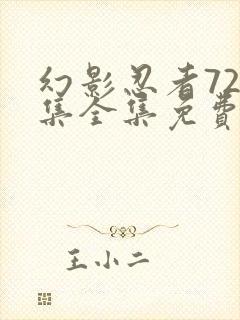 幻影忍者72
集全集免费
王小二